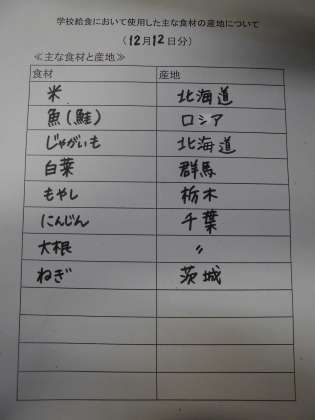 学校給食において使用した主な食材の産地について
（12月12日分）
≪主な食材と産地≫
食材 産地
米 北海道
魚（鮭） ロシア
じゃがいも 北海道
白菜 群馬
もやし 栃木
にんじん 千葉
大根 〃
ねぎ 茨城